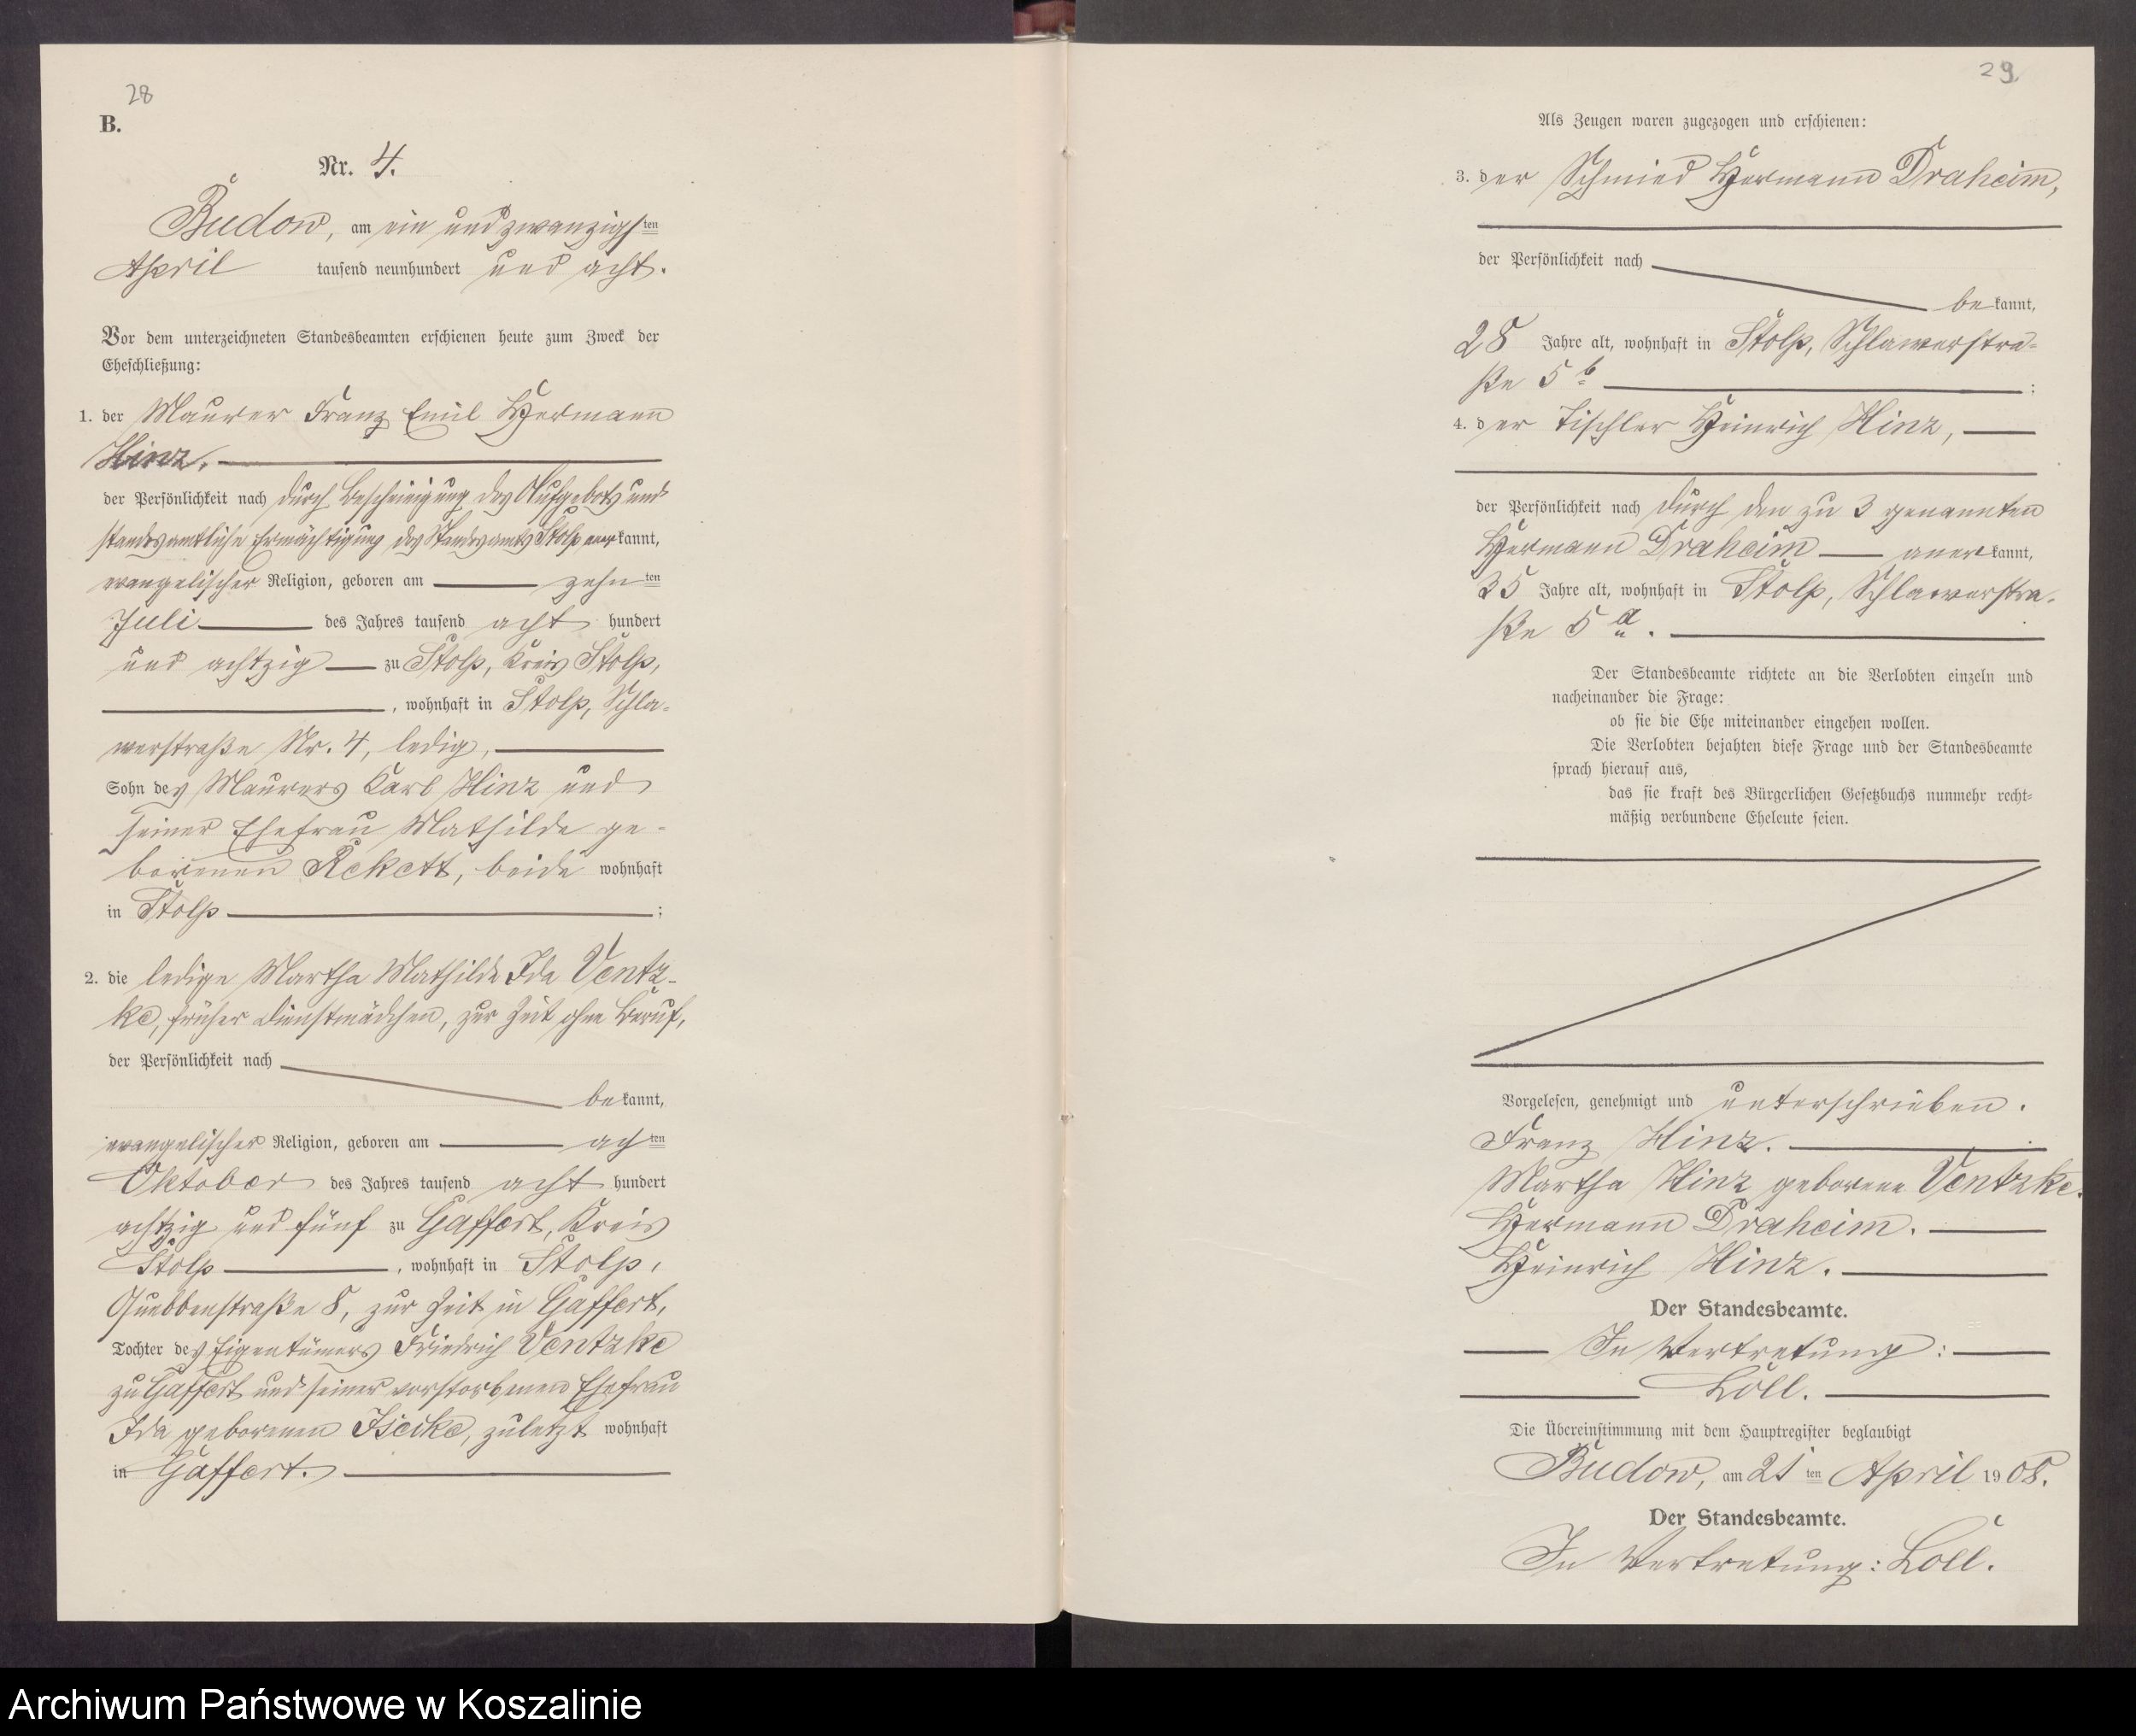 28
B.
Nr. 4.
Budow, am ein und zwanzigsten
April tausend neunhundert und acht.
Vor dem unterzeichneten Standesbeamten erschienen heute zum Zweck der
Eheschließung:
1. der Maurer Franz Emil Hermann
Hinz,
der Persönlichkeit nach durch Bescheinigung des Aufgebots und
standesamtliche Ermächtigung des Standesamts Stolp anerkannt,
evangelischer Religion, geboren am zehnten
Juli des Jahres tausend acht hundert
und achtzig zu Stolp, Kreis Stolp,
, wohnhaft in Stolp, Schla-
werstraße Nr. 4, ledig,
Sohn des Maurers Karl Hinz und
seiner Ehefrau Mathilde ge-
borenen Rekett, beide wohnhaft
in Stolp ;
2. die ledige Martha Mathilde Ida Ventz-
ke, früher Dienstmädchen, zur Zeit ohne Beruf,
der Persönlichkeit nach
bekannt,
evangelischer Religion, geboren am achten
Oktober des Jahres tausend acht hundert
achtzig und fünf zu Gaffert, Kreis
Stolp , wohnhaft in Stolp,
Quebbenstraße 8, zur Zeit in Gaffert,
Tochter des Eigentümers Friedrich Ventzke
zu Gaffert und seiner verstorbenen Ehefrau
Ida geborenen Iseike, zuletzt wohnhaft
in Gaffert.
29
Als Zeugen waren zugezogen und erschienen:
3. der Schmied Hermann Draheim,
der Persönlichkeit nach
bekannt,
28 Jahre alt, wohnhaft in Stolp, Schlawerstra-
ße 5 b ;
4. der Tischler Heinrich Hinz,
der Persönlichkeit nach durch den zu 3 genannten
Hermann Draheim anerkannt,
35 Jahre alt, wohnhaft in Stolp, Schlawerstra-
ße 5 a.
Der Standesbeamte richtete an die Verlobten einzeln und
nacheinander die Frage:
ob sie die Ehe miteinander eingehen wollen.
Die Verlobten bejahten diese Frage und der Standesbeamte
sprach hierauf aus,
das sie kraft des Bürgerlichen Gesetzbuchs nunmehr recht-
mäßig verbundene Eheleute seien.
Vorgelesen, genehmigt und unterschrieben.
Franz Hinz.
Martha Hinz geborene Ventzke.
Hermann Draheim.
Heinrich Hinz.
Der Standesbeamte.
In Vertretung:
Loll.
Die Übereinstimmung mit dem Hauptregister beglaubigt
Budow, am 21 ten April 1908.
Der Standesbeamte.
In Vertretung: Loll.
Archiwum Państwowe w Koszalinie